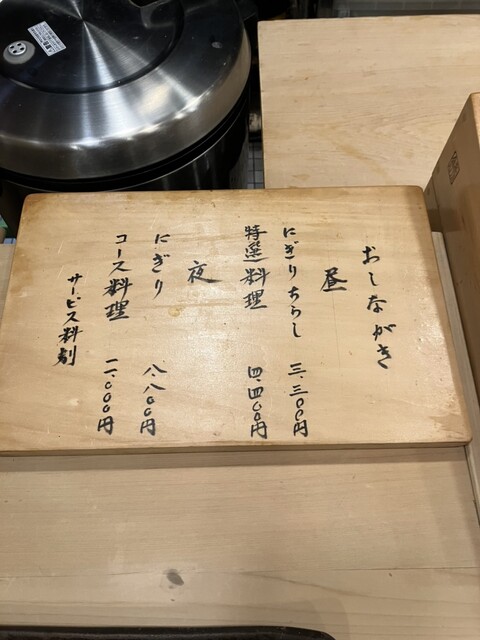 おしながき
昼
にぎりちらし 三.三〇〇円
特選料理 四.四〇〇円
夜
にぎり 八.八〇〇円
コース料理 一一.〇〇〇円
サービス料別